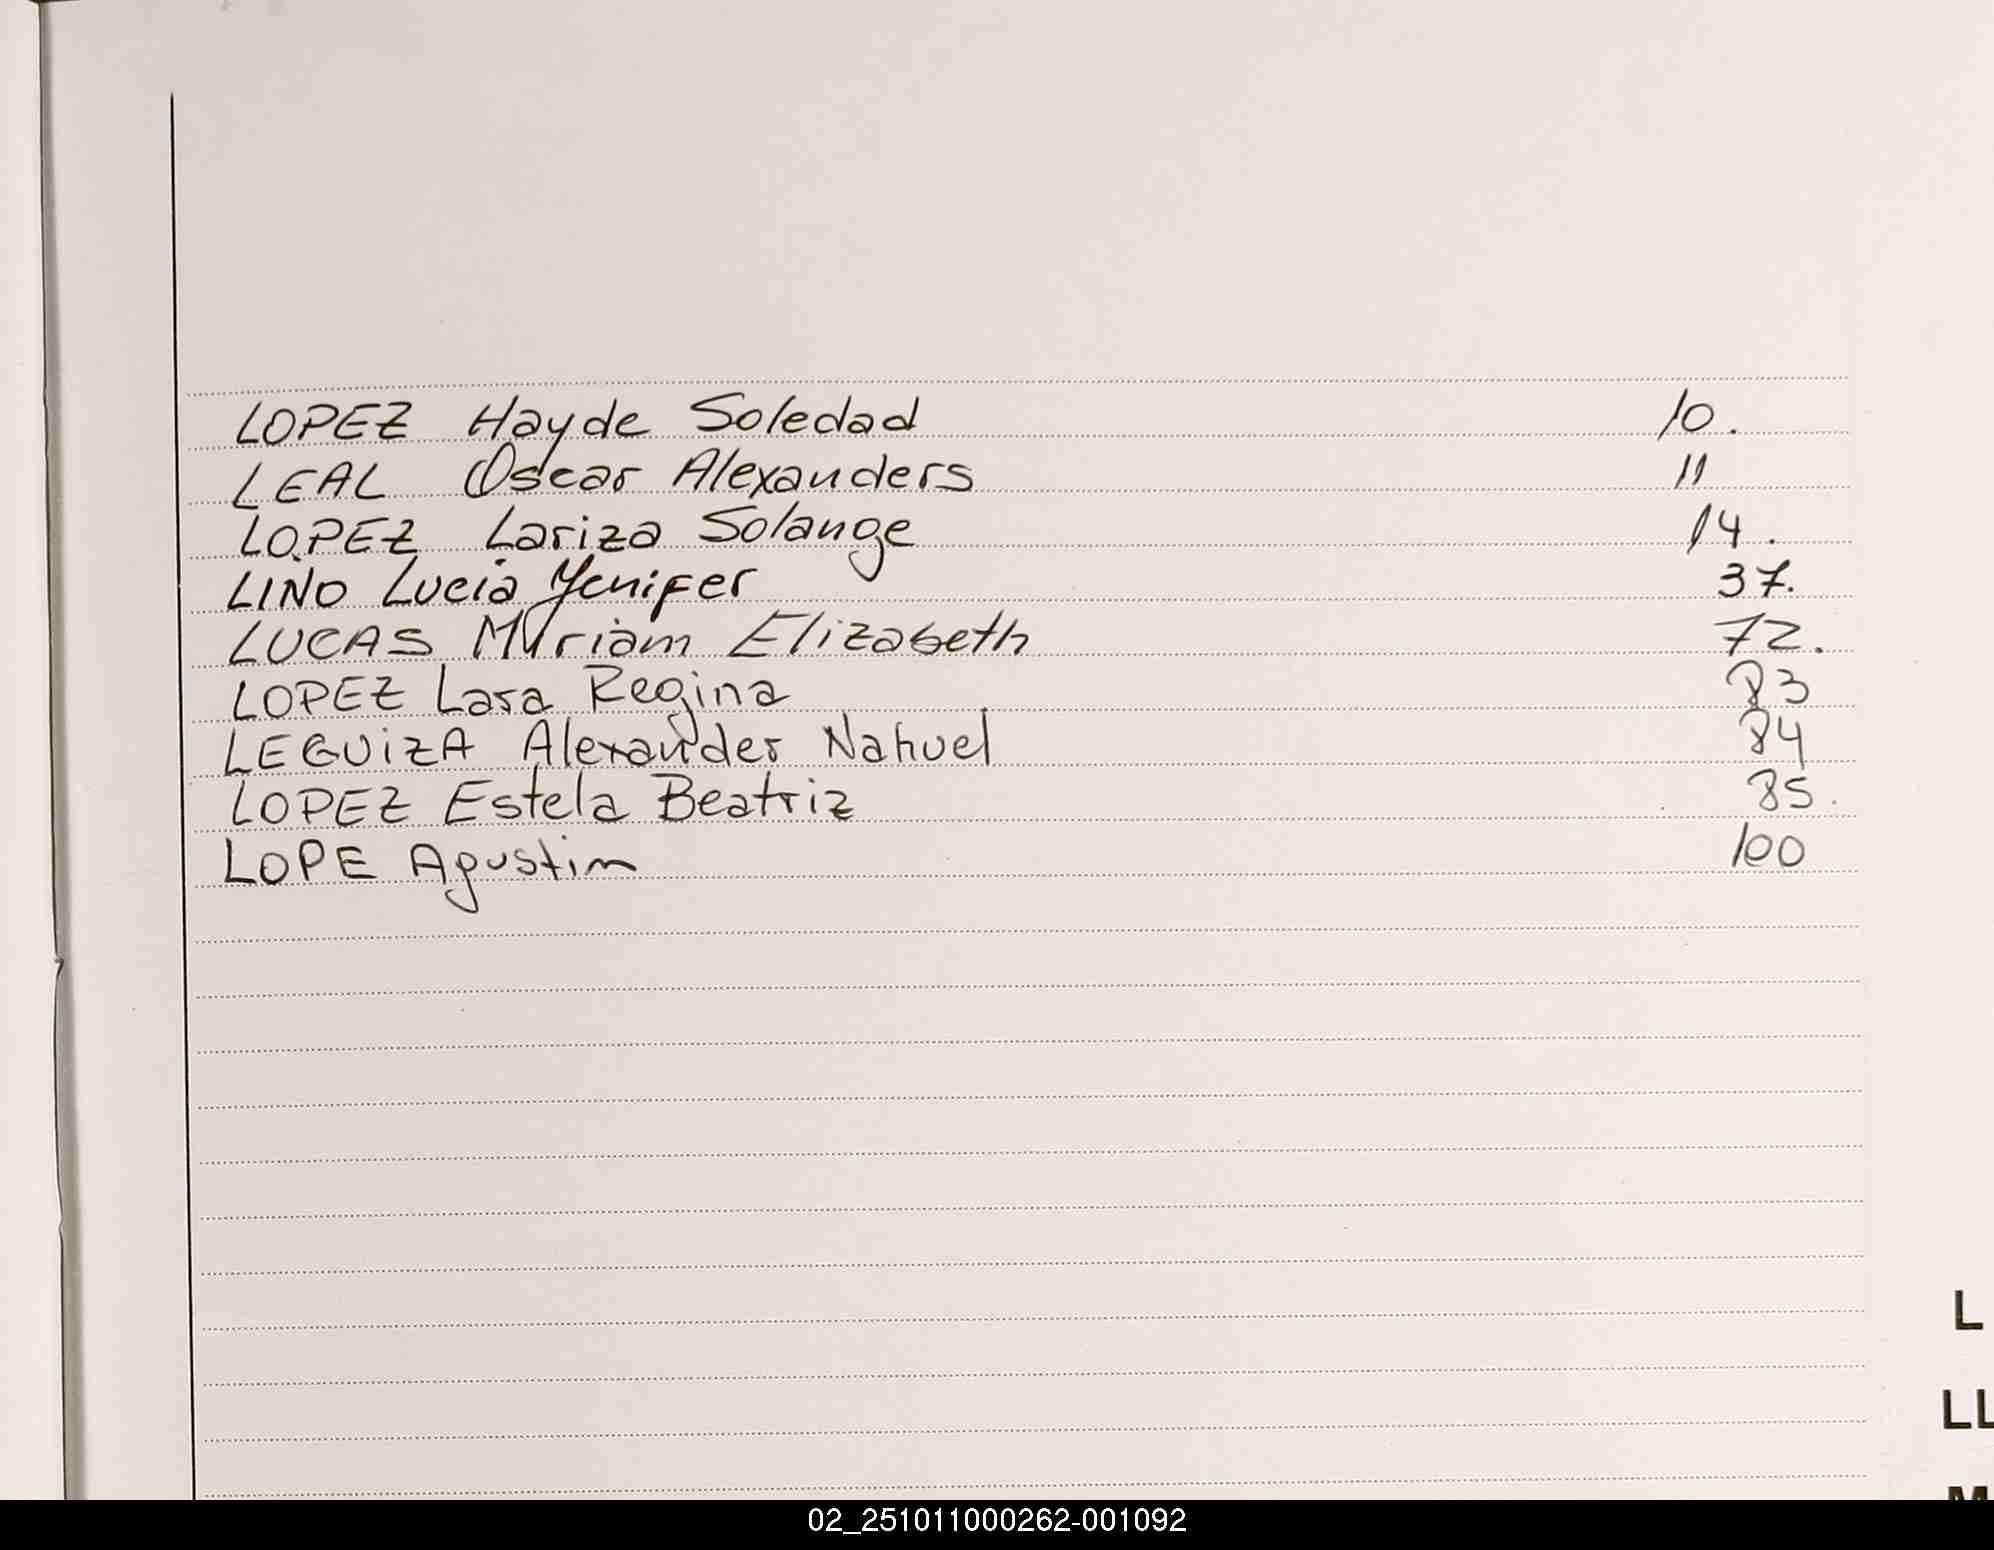 LOPEZ Hayde Soledad 10.
LEAL Oscar Alexanders 11
LOPEZ Lariza Solange 14.
LIÑO Lucia Yenifer 37.
LUCAS Myriam Elizabeth 72.
LOPEZ Lara Regina 83
LEGUiZA Alexander Nahuel 84
LOPEZ Estela Beatriz 85.
LOPE Agustin 100
L
LL
M
02_251011000262-001092